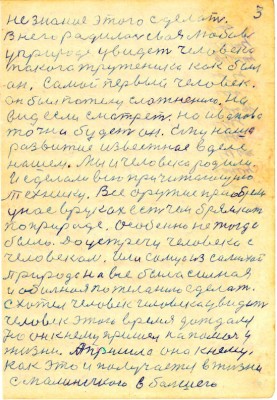 3
незнание этого сделать.
В него родилась своя любовь
у природе увидеть человека
такого труженика как был
он. Самый первый человек.
он был потому сложнению. На
вид если смотреть но
точка будет он. Ему наше
развитие известное в деле
нашем. Мы и человека родили.
И сделали
технику. Все оружие приобрели
у нас в руках есть чем бряжать
по природе. Особенно не тогда
было. До встречи человека с
человеком. Или самих из самой
природе на все была сильная
и обильная пожеланию сделать.
Схотел человек человека увидеть
человек этого время дождался
но он к нему пришел на помощь у
жизни. А пришло оно к нему.
Как это и получается в жизни
с маленького в большего